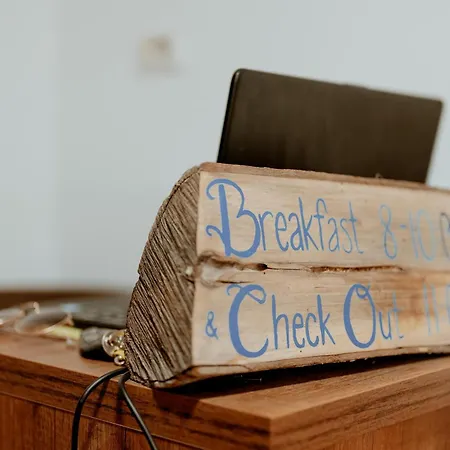 Breakfast 8-10
& Check Out 11